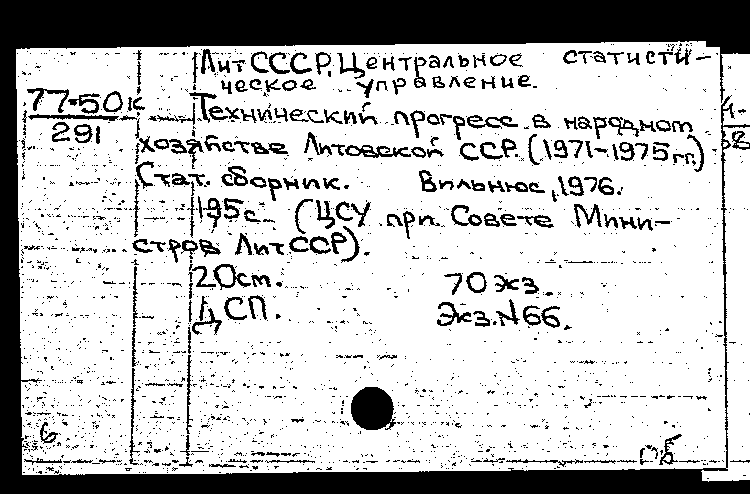 ЛитСССР, Центральное статисти-
ческое управление.
77-50к
291
Технический прогресс в народном
хозяйстве Литовской ССР. (1971-1975гг.)
Стат. сборник. Вильнюс, 1976.
195с. (ЦСУ при Совете Мини-
стров ЛитССР).
20см. 70экз.
ДСП. Экз.N66.
6